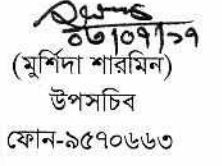 ০৩/০৭/১৭
(মুর্শিদা শারমিন)
উপসচিব
ফোন-৯৫৭০৬৬৩